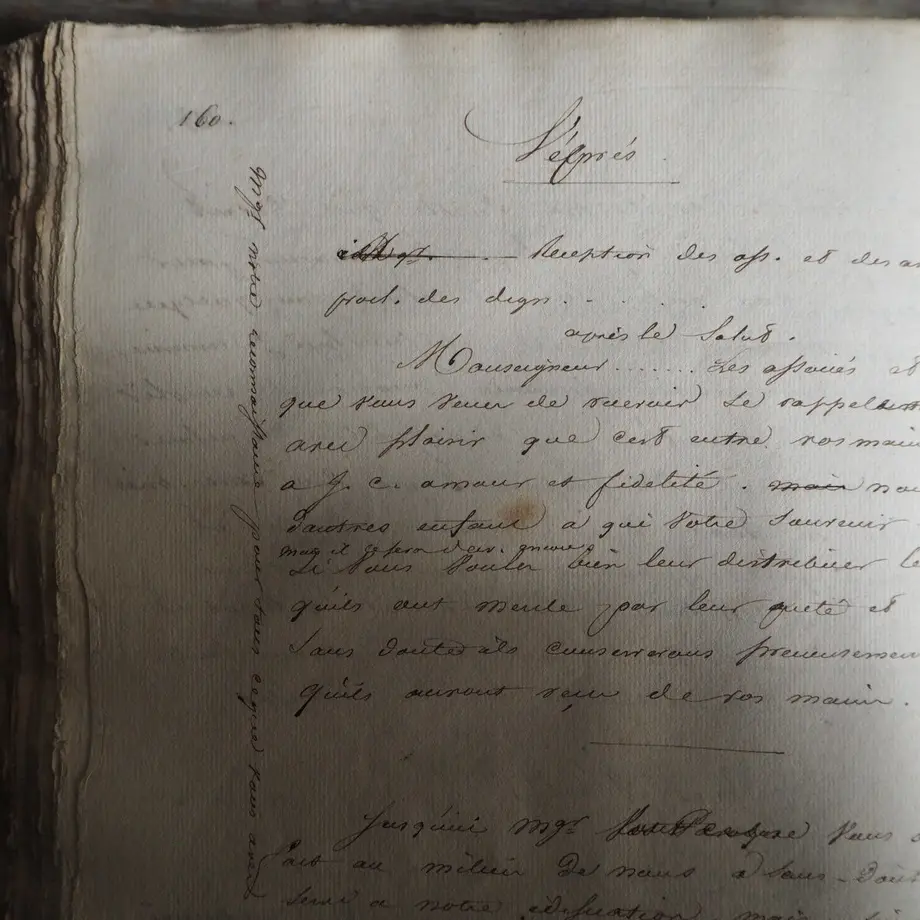 160.
Vêprés
Reception des ass. et des
proct. des dign. . . . .
après le Salut.
Monseigneur ....... Les assoiés et
que vous venez de recevoir se rappel
avec plaisir que c'est entre vos main
a J. C. amour et fidelité. mais nou
d'autres enfans a qui Votre Souvenir
Si Vous Voulez bien leur distribuer le
qu'ils ont merite par leur pieté et
Sans doute ils conserverons precieusemen
qu'ils auront reçu de vos mains.
Jusqu'ici mgr Vous
au milieu de nous a Sans-Dout
Servi a notre edification mais
notre reconnaissance pour tous ce que vous avez